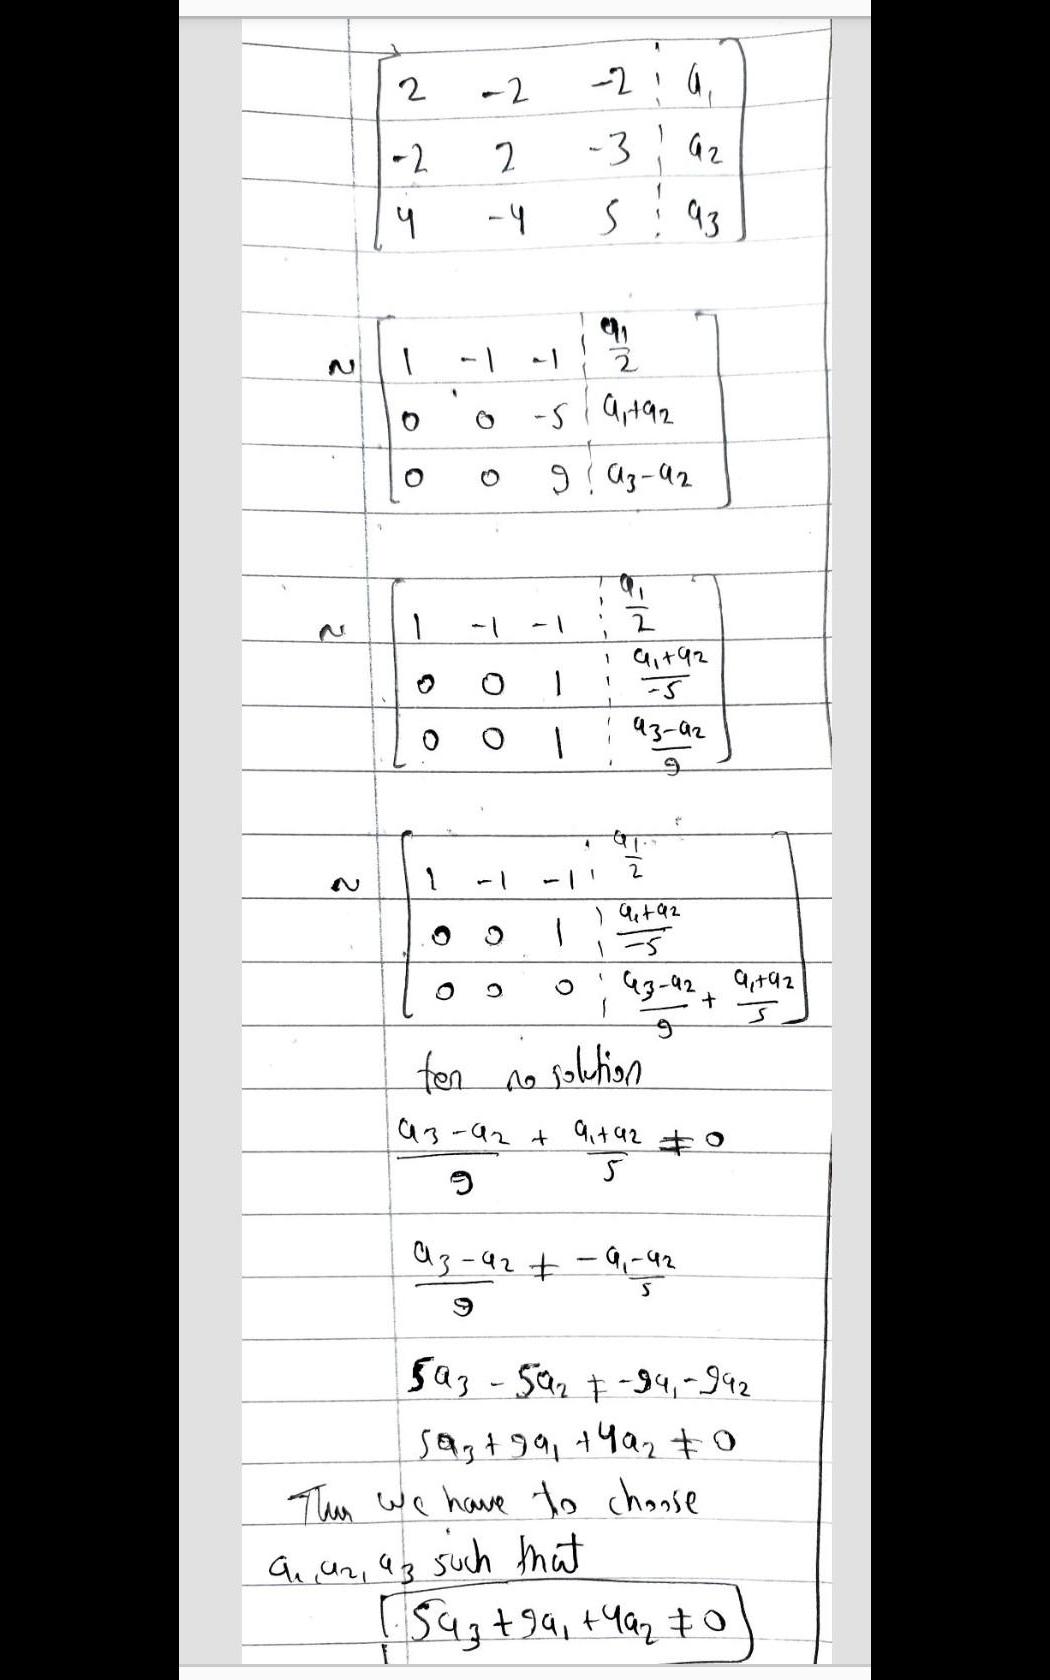 2 -2 -2 ¦ a₁
-2 2 -3 ¦ a₂
4 -4 5 ¦ a₃
~ 1 -1 -1 ¦ a₁/2
0 0 -5 ¦ a₁+a₂
0 0 9 ¦ a₃-a₂
~ 1 -1 -1 ¦ a₁/2
0 0 1 ¦ a₁+a₂/-5
0 0 1 ¦ a₃-a₂/9
~ 1 -1 -1 ¦ a₁/2
0 0 1 ¦ a₁+a₂/-5
0 0 0 ¦ a₃-a₂/9 + a₁+a₂/5
for no solution
a₃-a₂/9 + a₁+a₂/5 ≠ 0
a₃-a₂/9 ≠ -a₁-a₂/5
5a₃ - 5a₂ ≠ -9a₁-9a₂
5a₃+9a₁+4a₂ ≠ 0
Thus we have to choose
a₁, a₂, a₃ such that
5a₃+9a₁+4a₂ ≠ 0